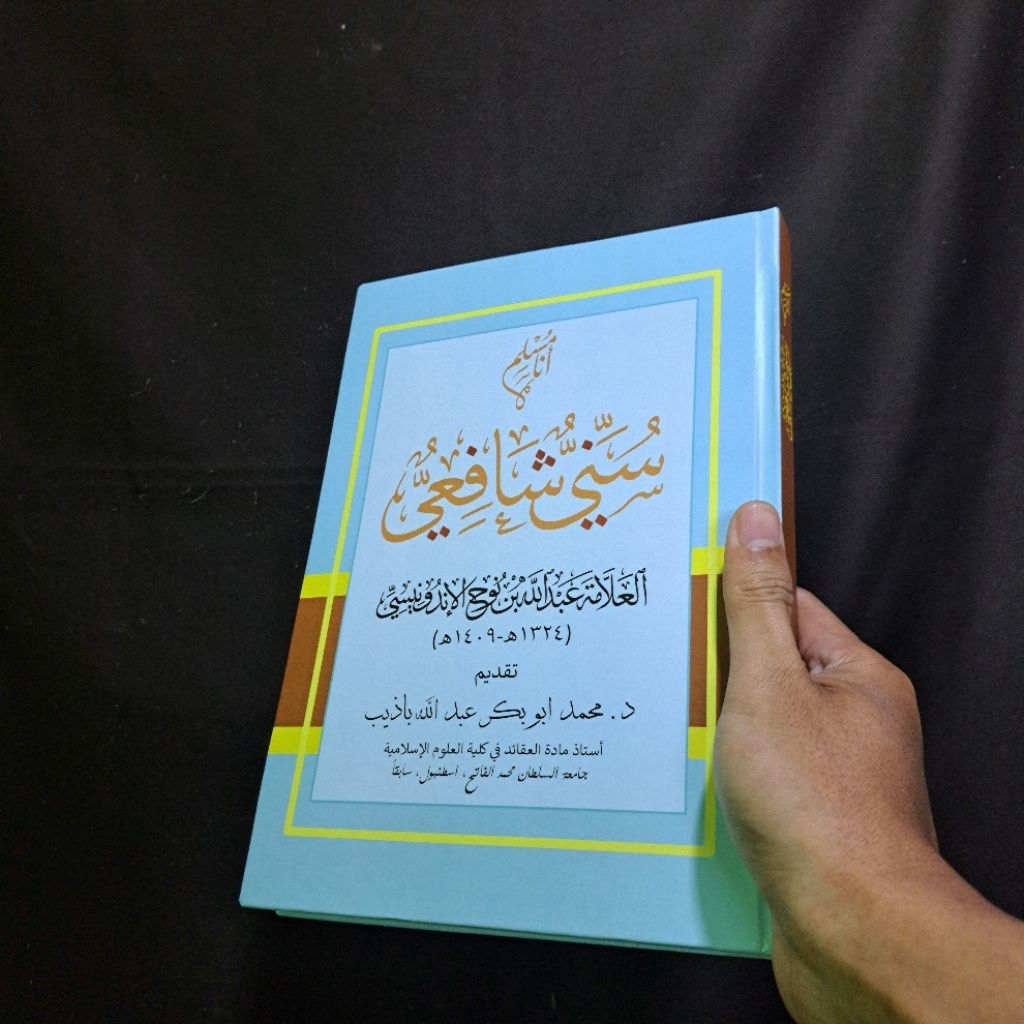 أنا مسلم
سُنِّيٌّ شَافِعِيٌّ
العَلَّامَة عَبْد الله بْن نُوح الإندُونِيسِيّ
(١٣٢٤هـ-١٤٠٩هـ)
تقديم
د. محمد ابو بكر عبد الله باذيب
أستاذ مادة العقائد في كلية العلوم الإسلامية
جامعة السلطان محمد الفاتح، اسطنبول، سابقاً